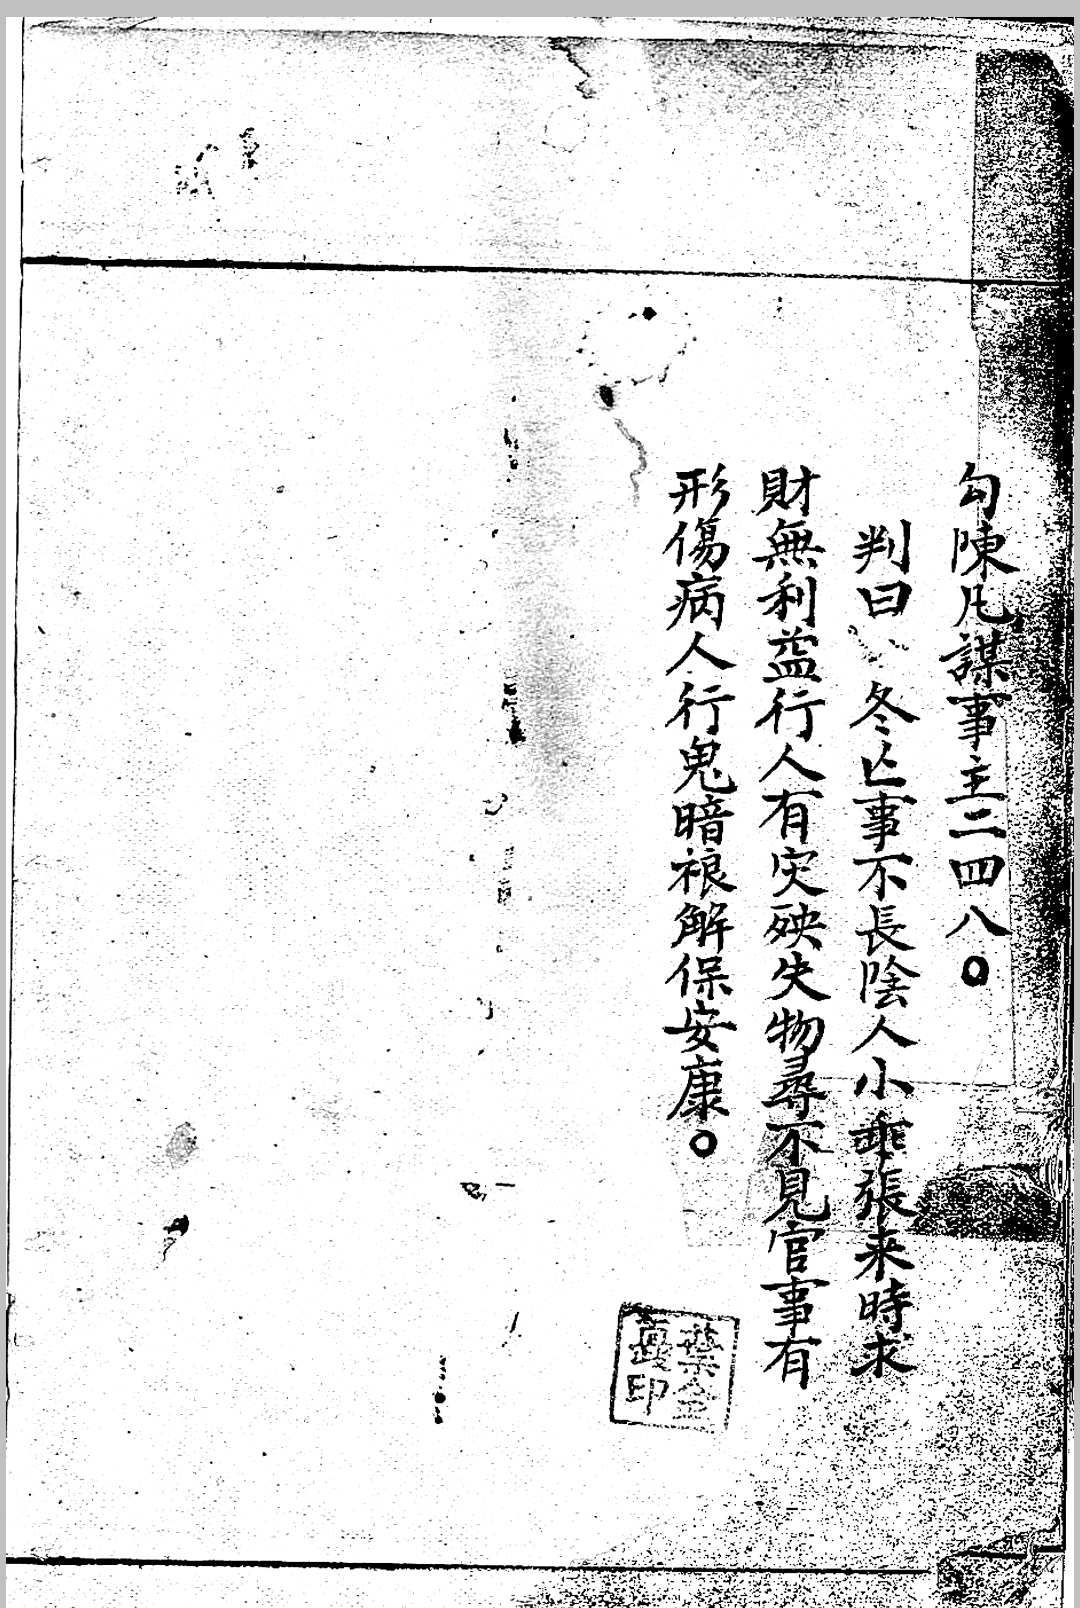 勾陳凡謀事主二四八。
判曰 冬亾事不長陰人小乖張来時求
財無利益行人有灾殃失物尋不見官事有
形傷病人行鬼暗禳解保安康。
葉金
印